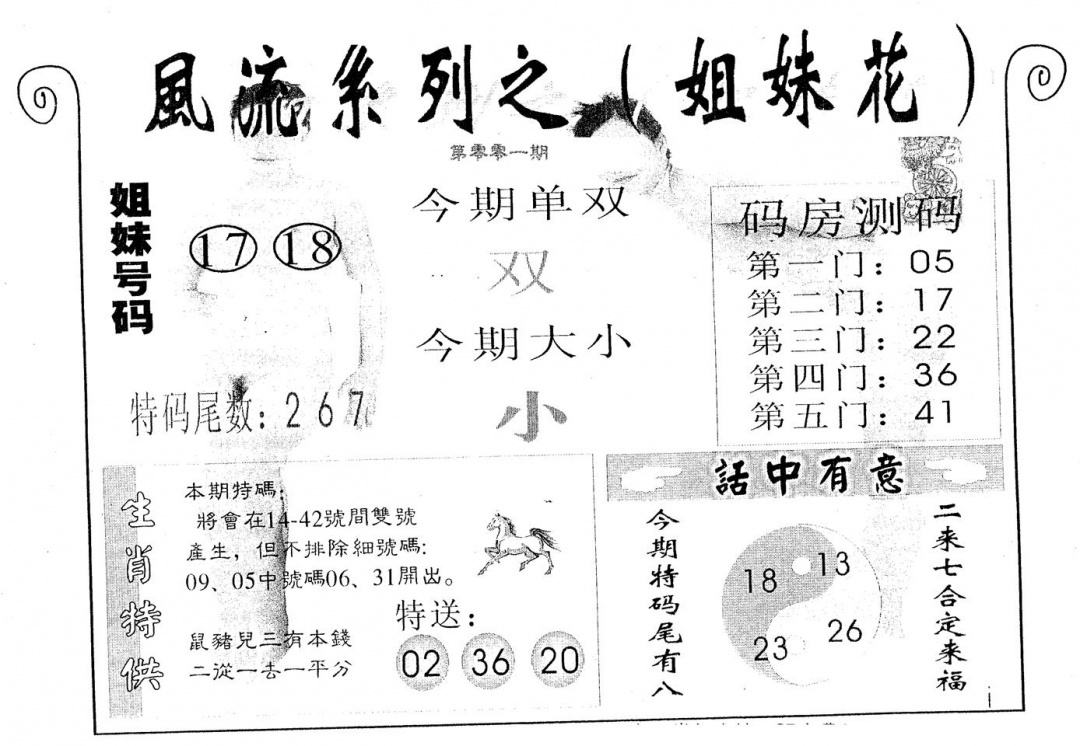 風流系列之（姐妹花）
第零零一期
姐妹号码
17 18
特码尾数：267
今期单双
双
今期大小
小
码房测码
第一门：05
第二门：17
第三门：22
第四门：36
第五门：41
生肖特供
本期特碼：
將會在14-42號間雙號
產生，但不排除細號碼：
09、05中號碼06、31開出。
鼠豬兒三有本錢
二從一去一平分
特送：
02 36 20
話中有意
今期特码尾有八
18 13
23 26
二来七合定来福